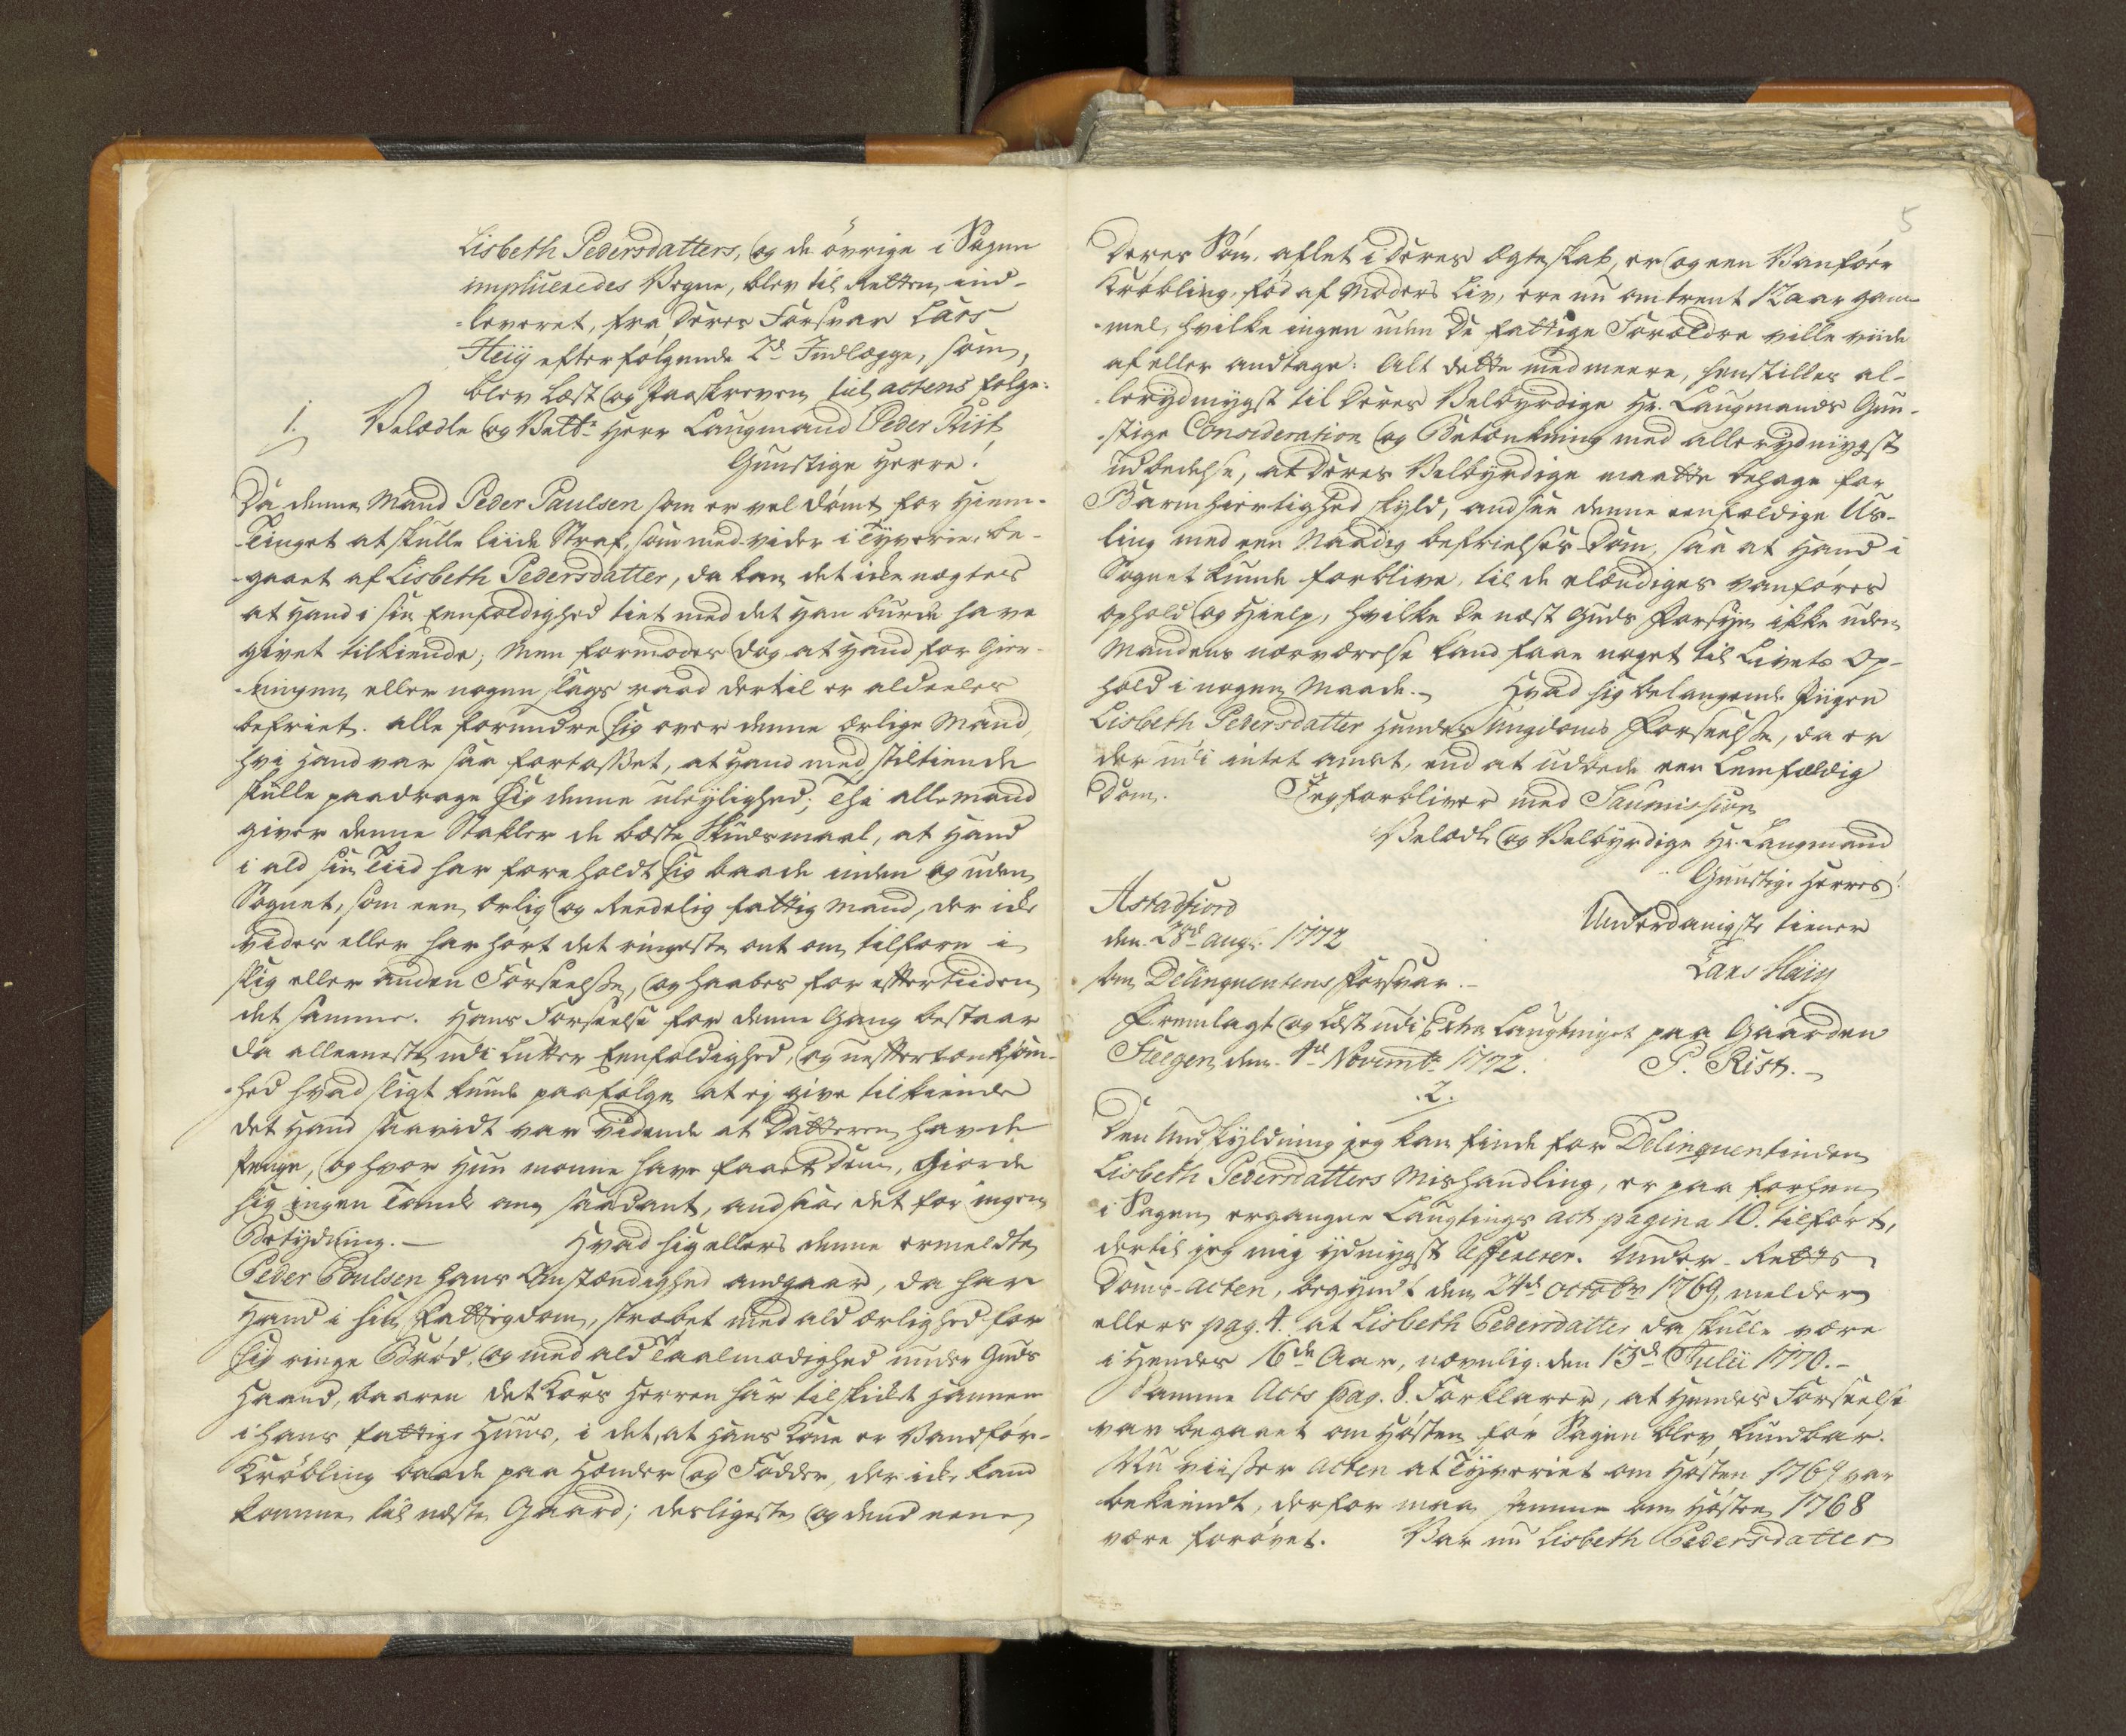 Lisbeth Pedersdatters, og de øvrige i Sagen
impliceredes Vegne, blev til Retten ind-
-leveret, fra deres Forsvar Lars
Heiy efterfølgende 2de Indlægge, som,
blev læst og Paaskreven til actens følge:
1. Velædle og Velbr Herr Laugmand Peder Rist
Gunstige Herre!
Da denne Mand Peder Paulsen som er vel dømt for Hiem-
-Tinget at skulle liide Straf, som med-vider i Tyverie, be-
-gaaet af Lisbeth Pedersdatter, da kan det icke nægtes
at Hand i sin Eenfoldighed tiet med det Han burde have
givet tilkiende; Men formodes dog at Hand for Gier-
-ningen eller nogen slags raad dertil er aldeeles
befriet. alle forundre sig over denne ærlige Mand,
hvi Hand var saa fortasset, at Hand med stiltiende
skulle paadrage sig denne uleylighed; Thi allemand
giver denne Stakler de bæste Skudsmaal, at Hand
i ald sin Tiid har foreholdt sig baade inden og uden
Sognet, som een ærlig og Reedelig fattig Mand, der icke
vides eller har hørt det ringeste ont om tilforn i
slig eller anden Forseelsse, og haabes for eftertiiden
det samme. Hans Forseelse for denne Gang bestaar
da alleeneste udi lutter Eenfoldighed, og uefftertænksom-
-hed hvad sligt kunde paafølge at ej give tilkiende
det Hand saavidt var vidende at Datteren havde
Penge, og hvor Hun monne have faaet dem, Giorde
sig ingen Tanke om saadant, andsaae det for ingen
Betydning. — Hvad sig ellers denne ermeldte
Peder Poulsen hans Omstændighed andgaar, da har
Hand i sin Fattigdom, stræbet med ald ærlighed for
sig ringe Brød, og med ald Taalmodighed under Guds
Haand, baaren det Kors Herren har tilskicket Hannem
i hans fattige Huus, i det, at hans Kone er Vandfør-
Krøbling baade paa Hænder og Fødder, der icke kand
komme til næste Gaard; desligeste og dend eene
5
Deres Søn, aflet i deres Ægteskab, er og een Vanfóer
Krøbling, fød af Moders Liv, ere nu omtrent 12 aar gam-
-mel, hvilke ingen uden De fattige Forældre ville viide
af eller andtage: Alt dette med meere, henstilles al-
-lerydmygst til Deres Velbyrdige Hr. Laugmands Gun-
-stige Consideration og Betænkning med allerydmygst
udbedelse, at Deres Velbyrdige maatte behage for
Barmhiertighed skyld, andsee denne eenfoldige Us-
ling med een Naadig befrielses Dom, saa at Hand i
Sognet kunde forblive, til de elændiges vanføres
ophold og Hielp, hvilke de næst Guds Forsyn ikke uden
Mandens nærværelse kand faae noget til Livets Op-
hold i nogen Maade. Hvad sig belangende Piigen
Lisbeth Pedersdatter Hendes Ungdoms Forseelsse, da er
der udi intet andet, end at udbede een Lemfældig
Dom. Jeg forbliver med Submission
Velædle og Velbyrdige Hr. Laugmand
Gunstige Herres!
Astadfiord
den 28de Augs. 1772 Underdanigste tiener
som Delinquentens Forsvar. - Lars Haiy
Fremlagt og Læst udi Extra Laugtinget paa Gaarden
Steegen den 4de Novembr 1772. P. Rist.
2.
Den Undskyldning jeg kan finde for Delinquentinden
Lisbeth Pedersdatters Mishandling, er paa forhen
i Sagen ergangne Laugtings act pagina 10. tilført,
dertil jeg mig ydmygst refererer. Under-Retts
Doms-Acten, begyndt den 24de octobr 1769, melder
ellers pag. 4. at Lisbeth Pedersdatter da skulle være
i Hendes 16de Aar, nævnlig: den 13de Julii 1770. -
Samme Acts pag. 8. Forklarer, at Hendes Forseelse
var begaaet om Høsten før Sagen blev kundbar.
Nu viisser Acten at Tyveriet om Høsten 1769 var
bekiendt, derfor maa samme om Høsten 1768
være forøvet. Var nu Lisbeth Pedersdatter